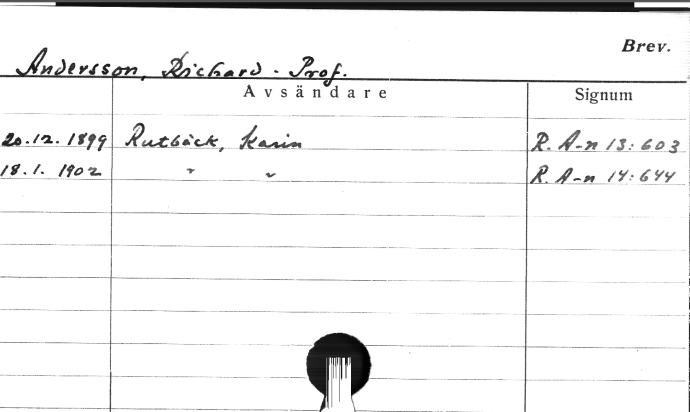 Brev.
Andersson, Richard - Prof.
Avsändare Signum
20.12.1899 Rutbäck, Karin R. A-n 13:603
18.1.1902 " " R. A-n 14:644